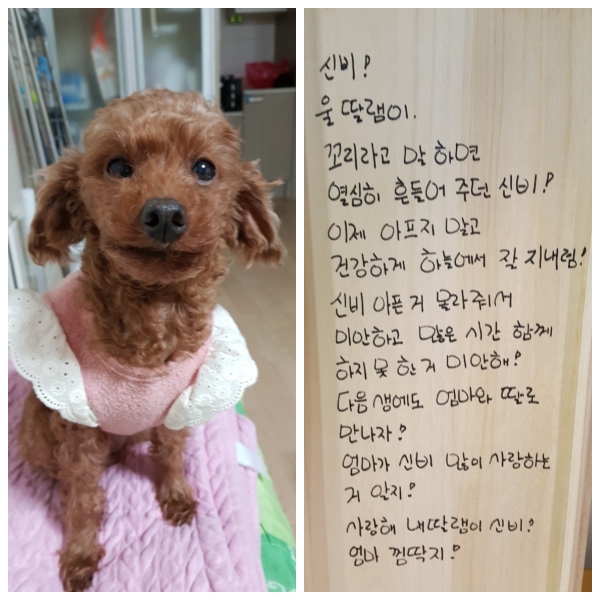 신비!
울 딸램이.
꼬리라고 말 하면
열심히 흔들어 주던 신비!
이제 아프지 말고
건강하게 하늘에서 잘 지내렴!
신비 아픈거 몰라줘서
미안하고 많은 시간 함께
하지 못 한거 미안해!
다음 생에도 엄마와 딸로
만나자!
엄마가 신비 많이 사랑하는
거 알지?
사랑해 내딸램이 신비!
엄마 껌딱지!